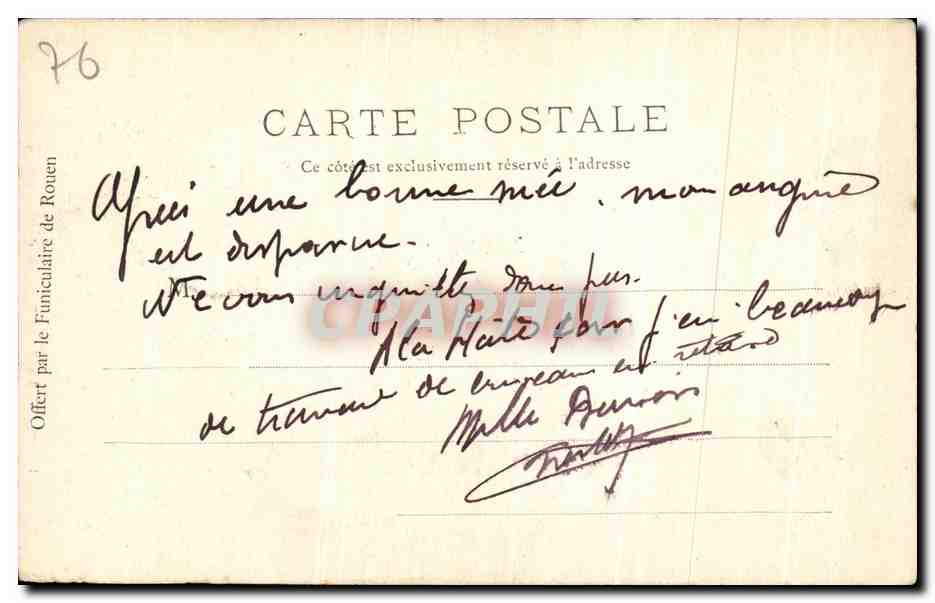 76
CARTE POSTALE
Ce côté est exclusivement réservé à l'adresse
Offert par le Funiculaire de Rouen
Après une bonne mon angine
est disparue.
Ne vous inquiettez donc pas.
A la Hâte car j'en beaucoup
de travaux de en retard
Mille
CPAPHIL